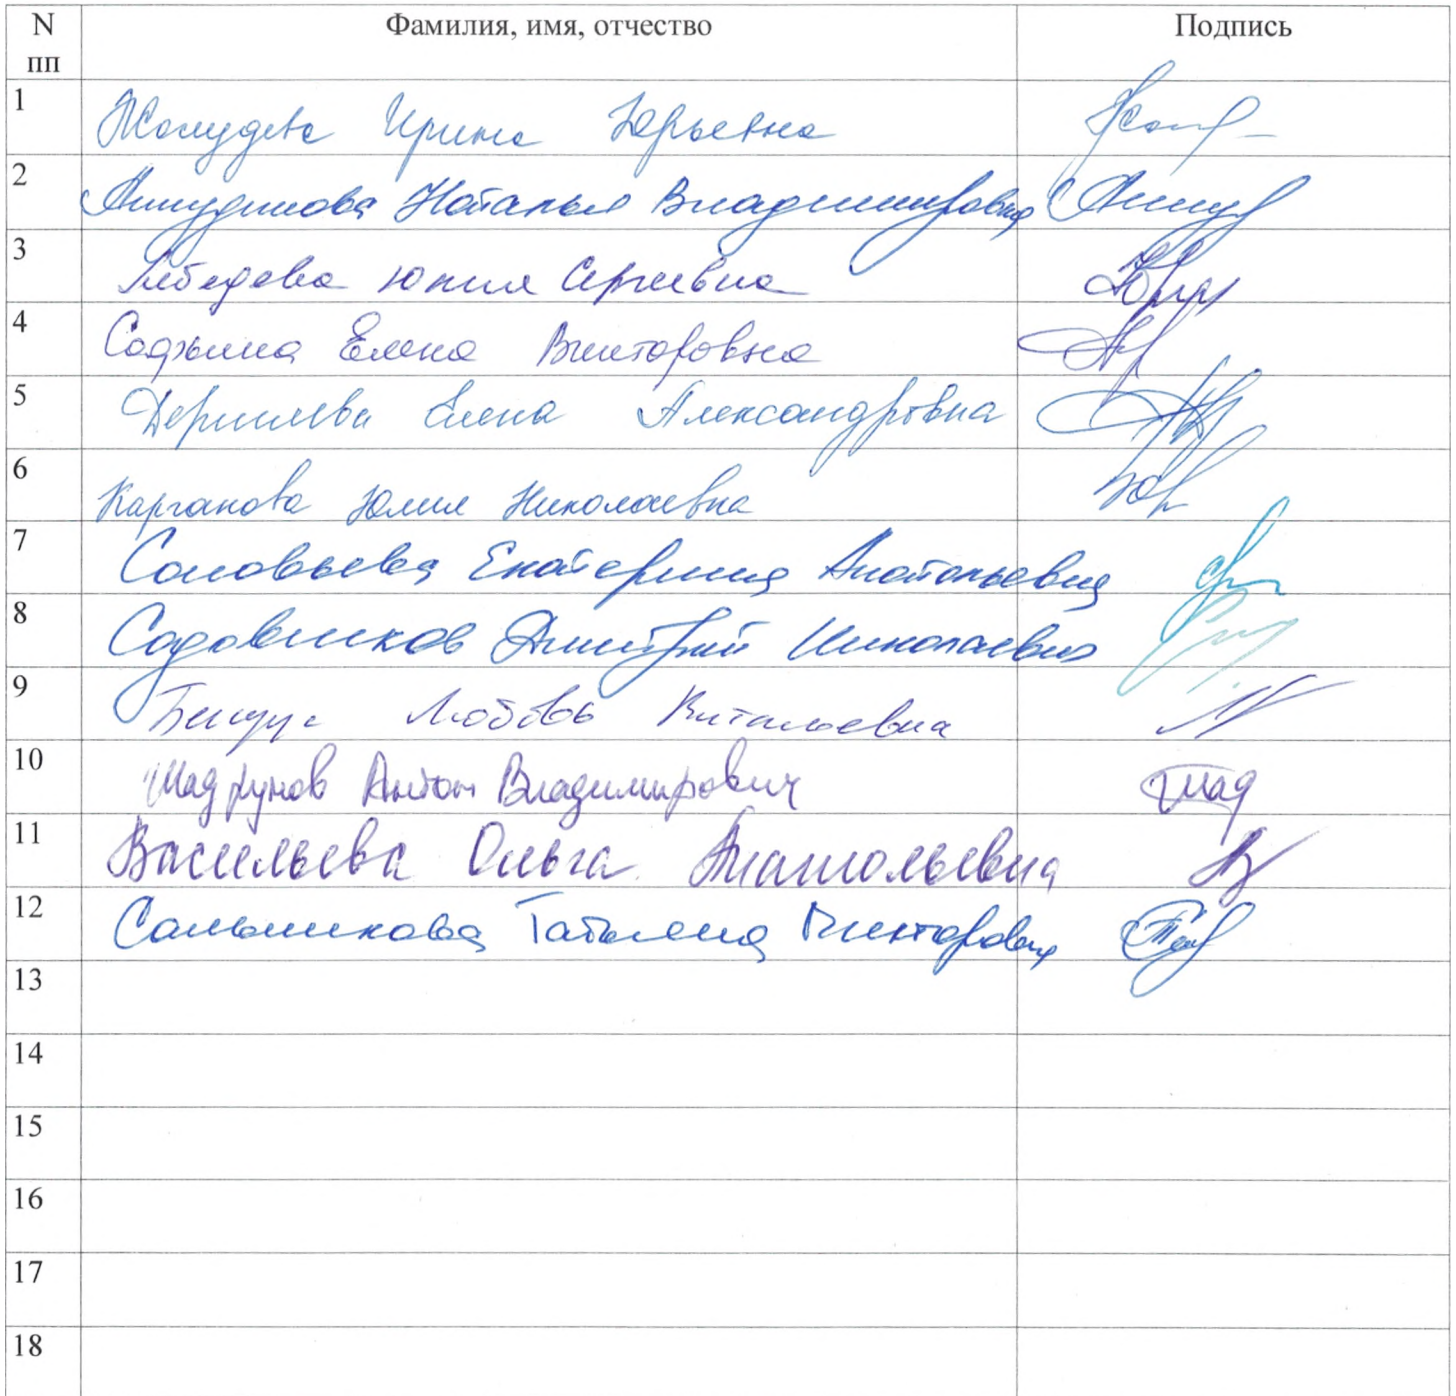 N пп Фамилия, имя, отчество Подпись
1 Жолудева Ирина Юрьевна
2 Анкудинова Наталья Владимировна
3 Лебедева Юлия Сергеевна
4 Елена Викторовна
5 Елена Александровна
6 Карганова Юлия Николаевна
7 Соловьева Екатерина Анатольевна
8 Садовников Дмитрий Николаевич
9 Любовь Витальевна
10 Шадрунов Антон Владимирович
11 Васильева Ольга Анатольевна
12 Сальникова Татьяна Викторовна
13
14
15
16
17
18